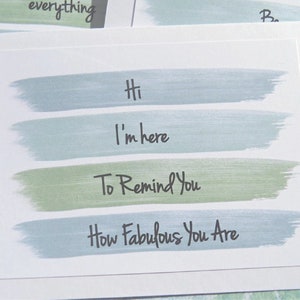 everything
Be
Hi
I'm here
To Remind You
How Fabulous You Are